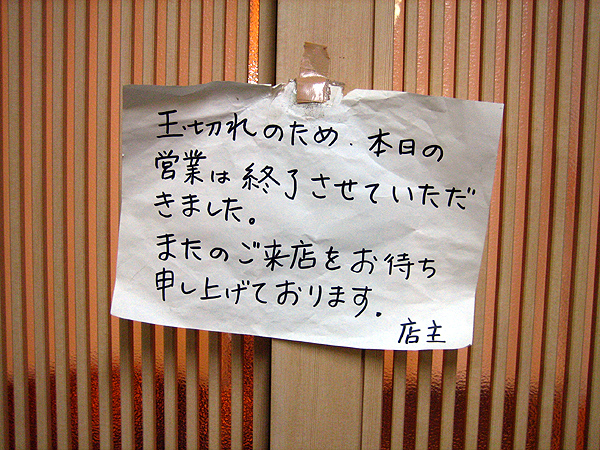 玉切れのため、本日の
営業は終了させていただ
きました。
またのご来店をお待ち
申し上げております。
店主